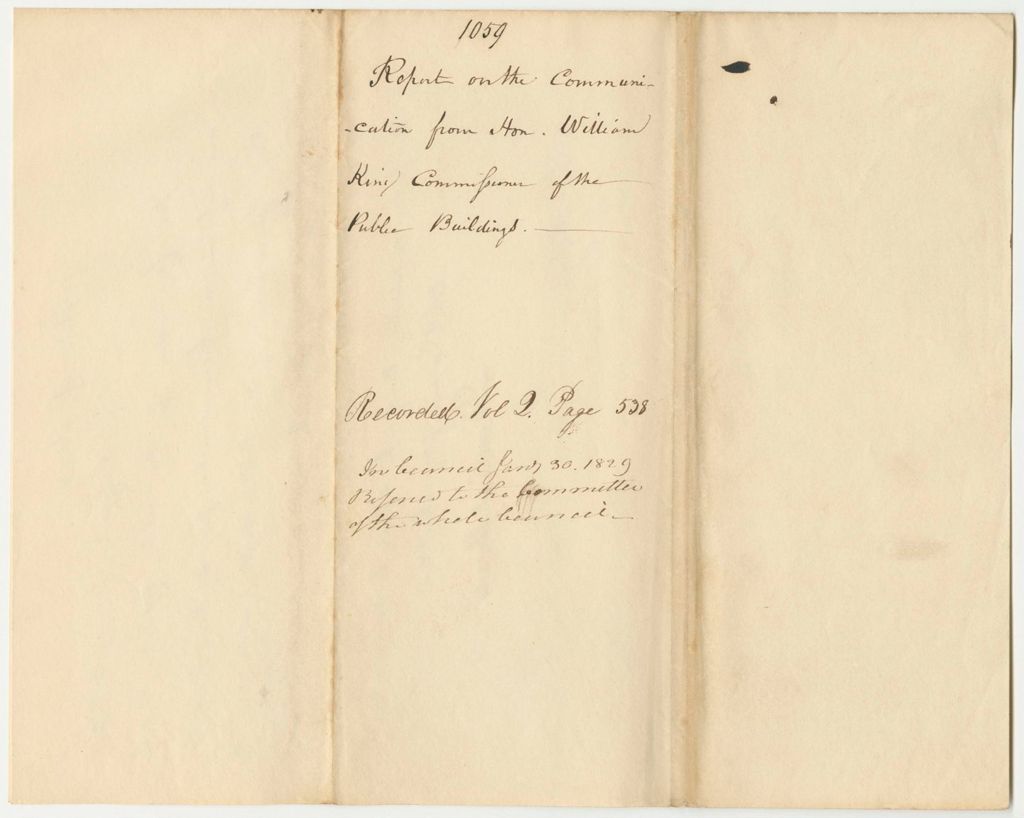 1059
Report on the Communi-
-cation from Hon. William
King Commissioner of the
Public Buildings.
Recorded. Vol 2. Page 538
In Council Jany 30. 1829
Referred to the Committee
of the whole Council.